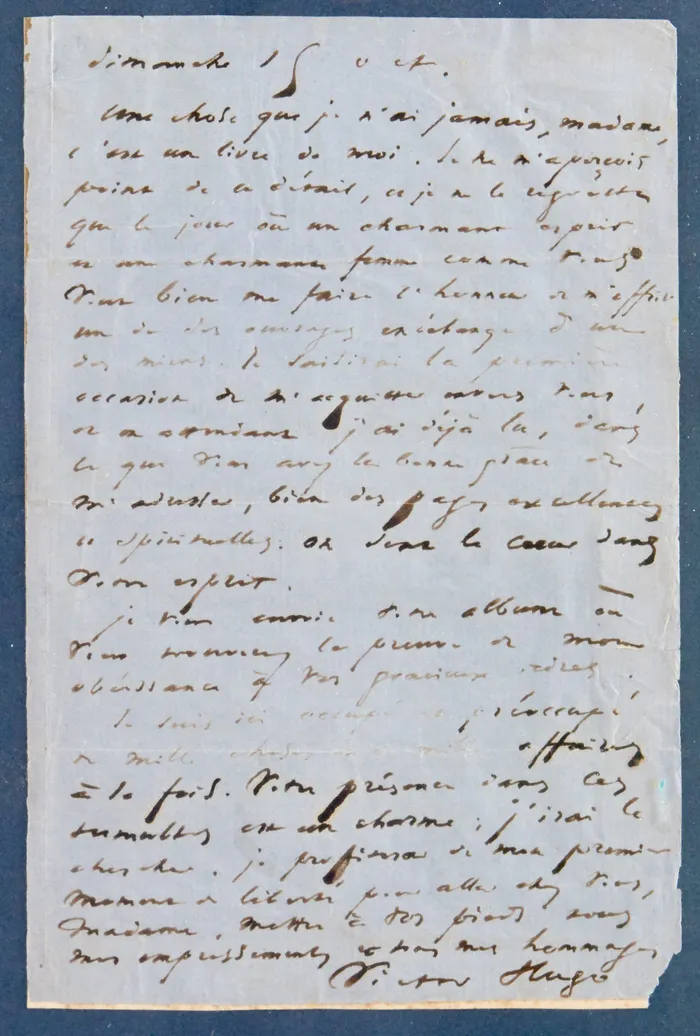 dimanche 15 oct.
Une chose que je n'ai jamais, madame,
c'est un livre de moi. Je ne m'aperçois
point de ce détail, et je ne le regrette
que le jour où un charmant esprit
et une charmante femme comme vous
veut bien me faire l'honneur de m'offrir
un de ses ouvrages en échange d'un
des miens. Je saisirai la première
occasion de m'acquitter envers vous,
et en attendant j'ai déjà lu, dans
ce que vous avez la bonne grâce de
m'adresser, bien des pages excellentes
et spirituelles. on sent le cœur dans
votre esprit.
je vous envoie votre album où
vous trouverez la preuve de mon
obéissance à vos gracieux
Je suis ici occupé et préoccupé
de mille choses et de mille affaires
à la fois. Votre présence dans ces
tumultes est un charme ; j'irai le
chercher. je profiterai de mon premier
moment de liberté pour aller chez vous,
Madame, mettre à vos pieds tous
mes empressements et tous mes hommages
Victor Hugo